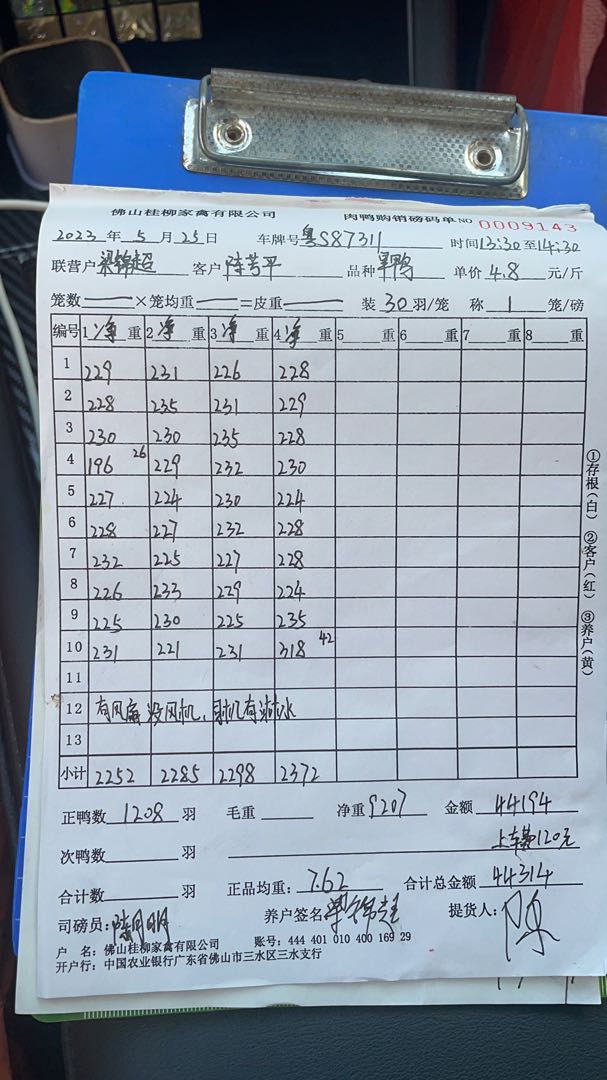 佛山桂柳家禽有限公司 肉鸭购销磅码单 NO 0009143
2023 年 5 月 25 日 车牌号 粤S87311 时间 13:30 至 14:30
联营户 梁锦超 客户 陈芳平 品种 旱鸭 单价 4.8 元/斤
笼数 ——— ×笼均重 ——— =皮重 ——— 装 30 羽/笼 称 1 笼/磅
编号 1 净 重 2 净 重 3 净 重 4 净 重 5 重 6 重 7 重 8 重
1 229 231 226 228
2 228 235 231 229
3 230 230 235 228
4 196 26 229 232 230
5 227 224 230 224
6 228 227 232 228
7 232 225 227 228
8 226 233 229 224
9 225 230 225 235
10 231 221 231 318 42
11
12 有风扇 没风机,有
13
小计 2252 2285 2298 2372
正鸭数 1208 羽 毛重 净重 9207 金额 44194
次鸭数 羽 上车费120元
合计数 羽 正品均重: 7.62 合计总金额 44314
司磅员: 陆月明 养户签名 提货人: 陈
户 名: 佛山桂柳家禽有限公司 账号: 444 401 010 400 169 29
开户行: 中国农业银行广东省佛山市三水区三水支行
①存根(白) ②客户(红) ③养户(黄)